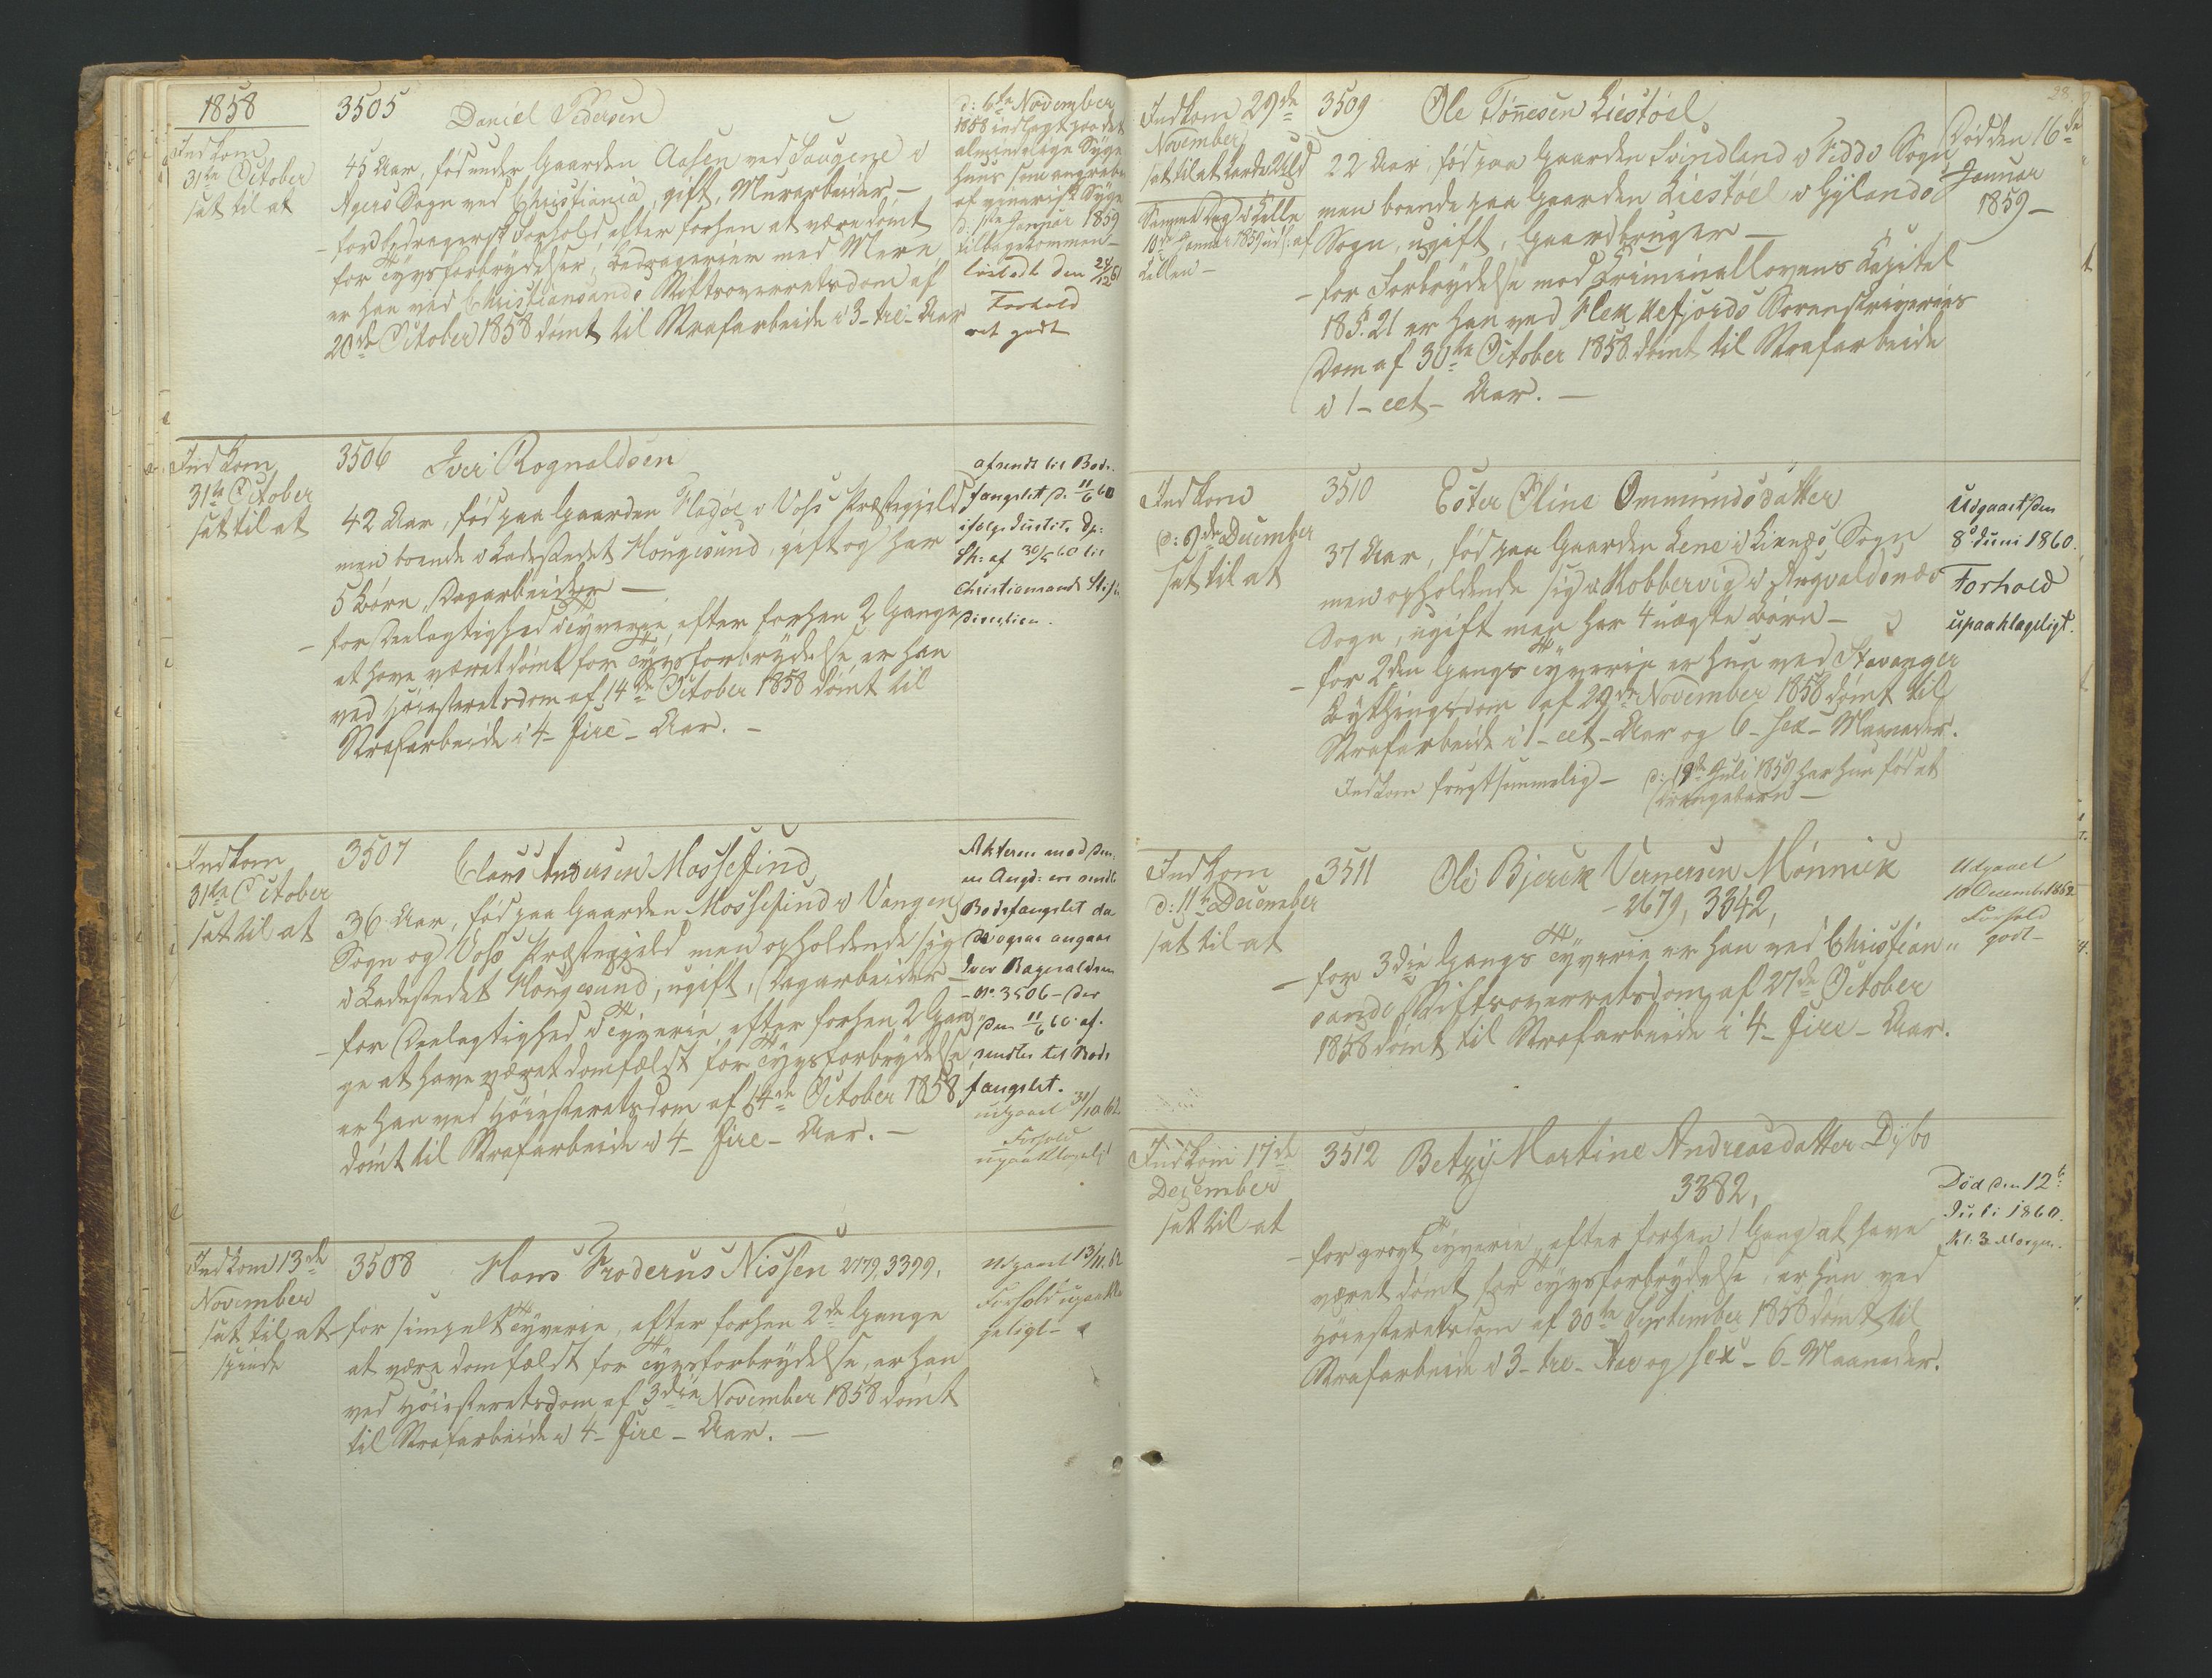 1858
Indkom
31te October
sat til at
3505 Daniel Pedersen
45 Aar, fød under Gaarden Aasen ved Saugene i
Agers Sogn ved Christiania, gift, Murarbeider –
– for bedragersk Forhold, efter forhen at være dømt
for Tyvsforbrydelser, Bedragerier med Mere
er han ved Christiansands Stiftsoverretsdom af
20de October 1858 dømt til Strafarbeide i 3 – tre – Aar
d: 6te November
1858 indlagt paa det
almindelige Syge
huus som angreben
af venerisk Syge
d: 1ste Januar 1859
tilbagekommen –
løsladt den 24/12 61
Forhold
ret godt
Indkom
31te October
sat til at
3506 Iver Rognaldsen
42 Aar, fød paa Gaarden i Voss Præstegjeld
men boende i Ladestedet Hougesund, gift og har
5 Børn, Dagarbeider –
– for Deelagtighed i Tyverie, efter forhen 2 Gange
at have været dømt for Tyvsforbrydelse, er han
ved Høiesteretsdom af 14de October 1858 dømt til
Strafarbeide i 4 – fire – Aar. –
afsendt til Bods-
fængslet d. 11/6 60
ifølge Justits Dp:
Sk: af 30/5 60 til
Christiansands Stifts
Direction.
Indkom
31te October
sat til at
3507 Claus Andersen Mossefind
36 Aar, fød paa Gaarden Mossefind i Vangens
Sogn og Voss Præstegjeld men opholdende sig
i Ladestedet Hougesund, ugift, Dagarbeider –
– for Deelagtighed i Tyverie, efter forhen 2 Gan-
ge at have været domfældt for Tyvsforbrydelse,
er han ved Høiesteretsdom af 14de October 1858
dømt til Strafarbeide i 4 – fire – Aar. –
Akterne mod den-
ne Ang: er sendt
Bodsfængslet da
de ogsaa angaar
Iver Ragnaldsen
– No 3506 – der
den 11/6 60 af-
sendtes til Bods
fængslet.
udgaaet 31/10 62
Forhold
upaaklageligt
Indkom 13de
November
sat til at
spinde
3508 Hans Proderus Nissen 2779, 3399,
– for simpelt Tyverie, efter forhen 2de Gange
at være domfældt for Tyvsforbrydelse, er han
ved Høiesteretsdom af 3die November 1858 dømt
til Strafarbeide i 4 – fire – Aar. –
Udgaaet 13/11. 62
Forhold upaakla
geligt –
28.
Indkom 29de
November
sat til at karde Uld
Samme Dag i Celle
10de Januar 1859 ud af
Cellen –
3509 Ole Tønnesen Liestøel
22 Aar, fød paa Gaarden Svindland i Siddo Sogn
men boende paa Gaarden Liestøel i Gylands
Sogn, ugift, Gaardbruger –
– for Forbrydelse mod Criminallovens Capitel
18 § 21 er han ved Flekkefjords Sorenskriveries
Dom af 30te October 1858 dømt til Strafarbeide
i 1 – eet – Aar. –
Død den 16de
Januar
1859 –
Indkom
d: 9de December
sat til at
3510 Ester Oline Ommundsdatter
37 Aar, fød paa Gaarden Lene i Sogn
men opholdende sig i Kobbervig i Augvaldsnæs
Sogn, ugift men har 4 uægte Børn –
– for 2den Gangs Tyverie er hun ved Stavanger
Bythingsdom af 29de November 1858 dømt til
Strafarbeide i 1 – eet – Aar og 6 – sex – Maaneder.
Indkom frugtsommelig – d: 19de Juli 1859 har hun fød et
Drengebarn –
Udgaaet den
8de Juni 1860.
Forhold
upaaklageligt.
Indkom
d: 11te December
sat til at
3511 Ole Bjerck Vernersen Mønnick
– 2679, 3342,
– for 3die Gangs Tyverie er han ved Christian-
sands Stiftsoverretsdom af 27de October
1858 dømt til Strafarbeide i 4 – fire – Aar.
Udgaaet
10 Decembr 1862
Forhold
godt –
Indkom 17de
December
sat til at
3512 Betzy Martine Andreasdatter Dybo
3382,
– for grovt Tyverie, efter forhen 1 Gang at have
været dømt for Tyvsforbrydelse, er hun ved
Høiesteretsdom af 30te September 1858 dømt til
Strafarbeide i 3 – tre – Aar og sex – 6 – Maaneder.
Død den 12te
Juli 1860.
Kl: 3 Morgen.